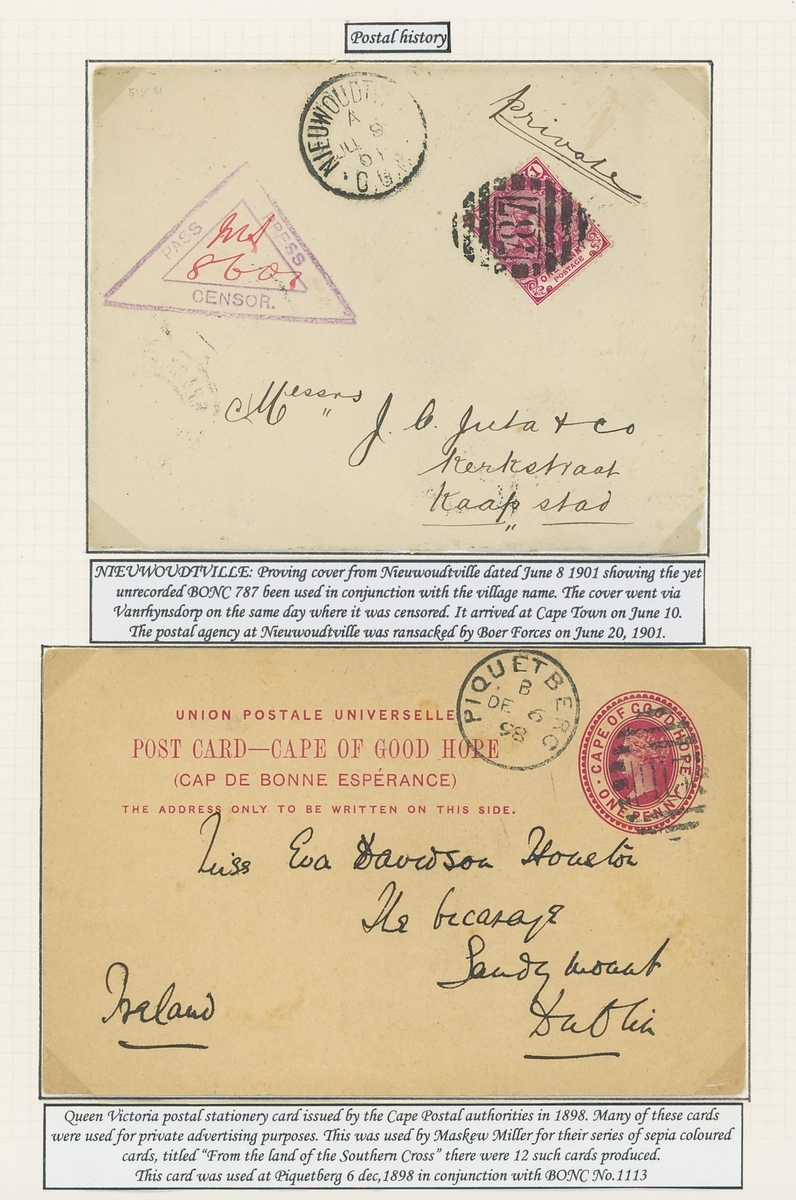 Postal history
51/21
NIEUWOUDTV
A
8
JU
01
C.G.H.
Private
1
787
ONE PENNY
POSTAGE
PASS
PRESS
860
CENSOR.
Messrs J. C. Juta & Co
Kerkstraat
Kaapstad
NIEUWOUDTVILLE: Proving cover from Nieuwoudtville dated June 8 1901 showing the yet
unrecorded BONC 787 been used in conjunction with the village name. The cover went via
Vanrhynsdorp on the same day where it was censored. It arrived at Cape Town on June 10.
The postal agency at Nieuwoudtville was ransacked by Boer Forces on June 20, 1901.
PIQUETBERG
B
DE 6
98
UNION POSTALE UNIVERSELLE
POST CARD—CAPE OF GOOD HOPE
(CAP DE BONNE ESPÉRANCE)
THE ADDRESS ONLY TO BE WRITTEN ON THIS SIDE.
CAPE OF GOOD HOPE
ONE PENNY
Miss Eva Davidson Houston
The Vicarage
Sandymount
Ireland
Dublin
Queen Victoria postal stationery card issued by the Cape Postal authorities in 1898. Many of these cards
were used for private advertising purposes. This was used by Maskew Miller for their series of sepia coloured
cards, titled “From the land of the Southern Cross” there were 12 such cards produced.
This card was used at Piquetberg 6 dec,1898 in conjunction with BONC No.1113